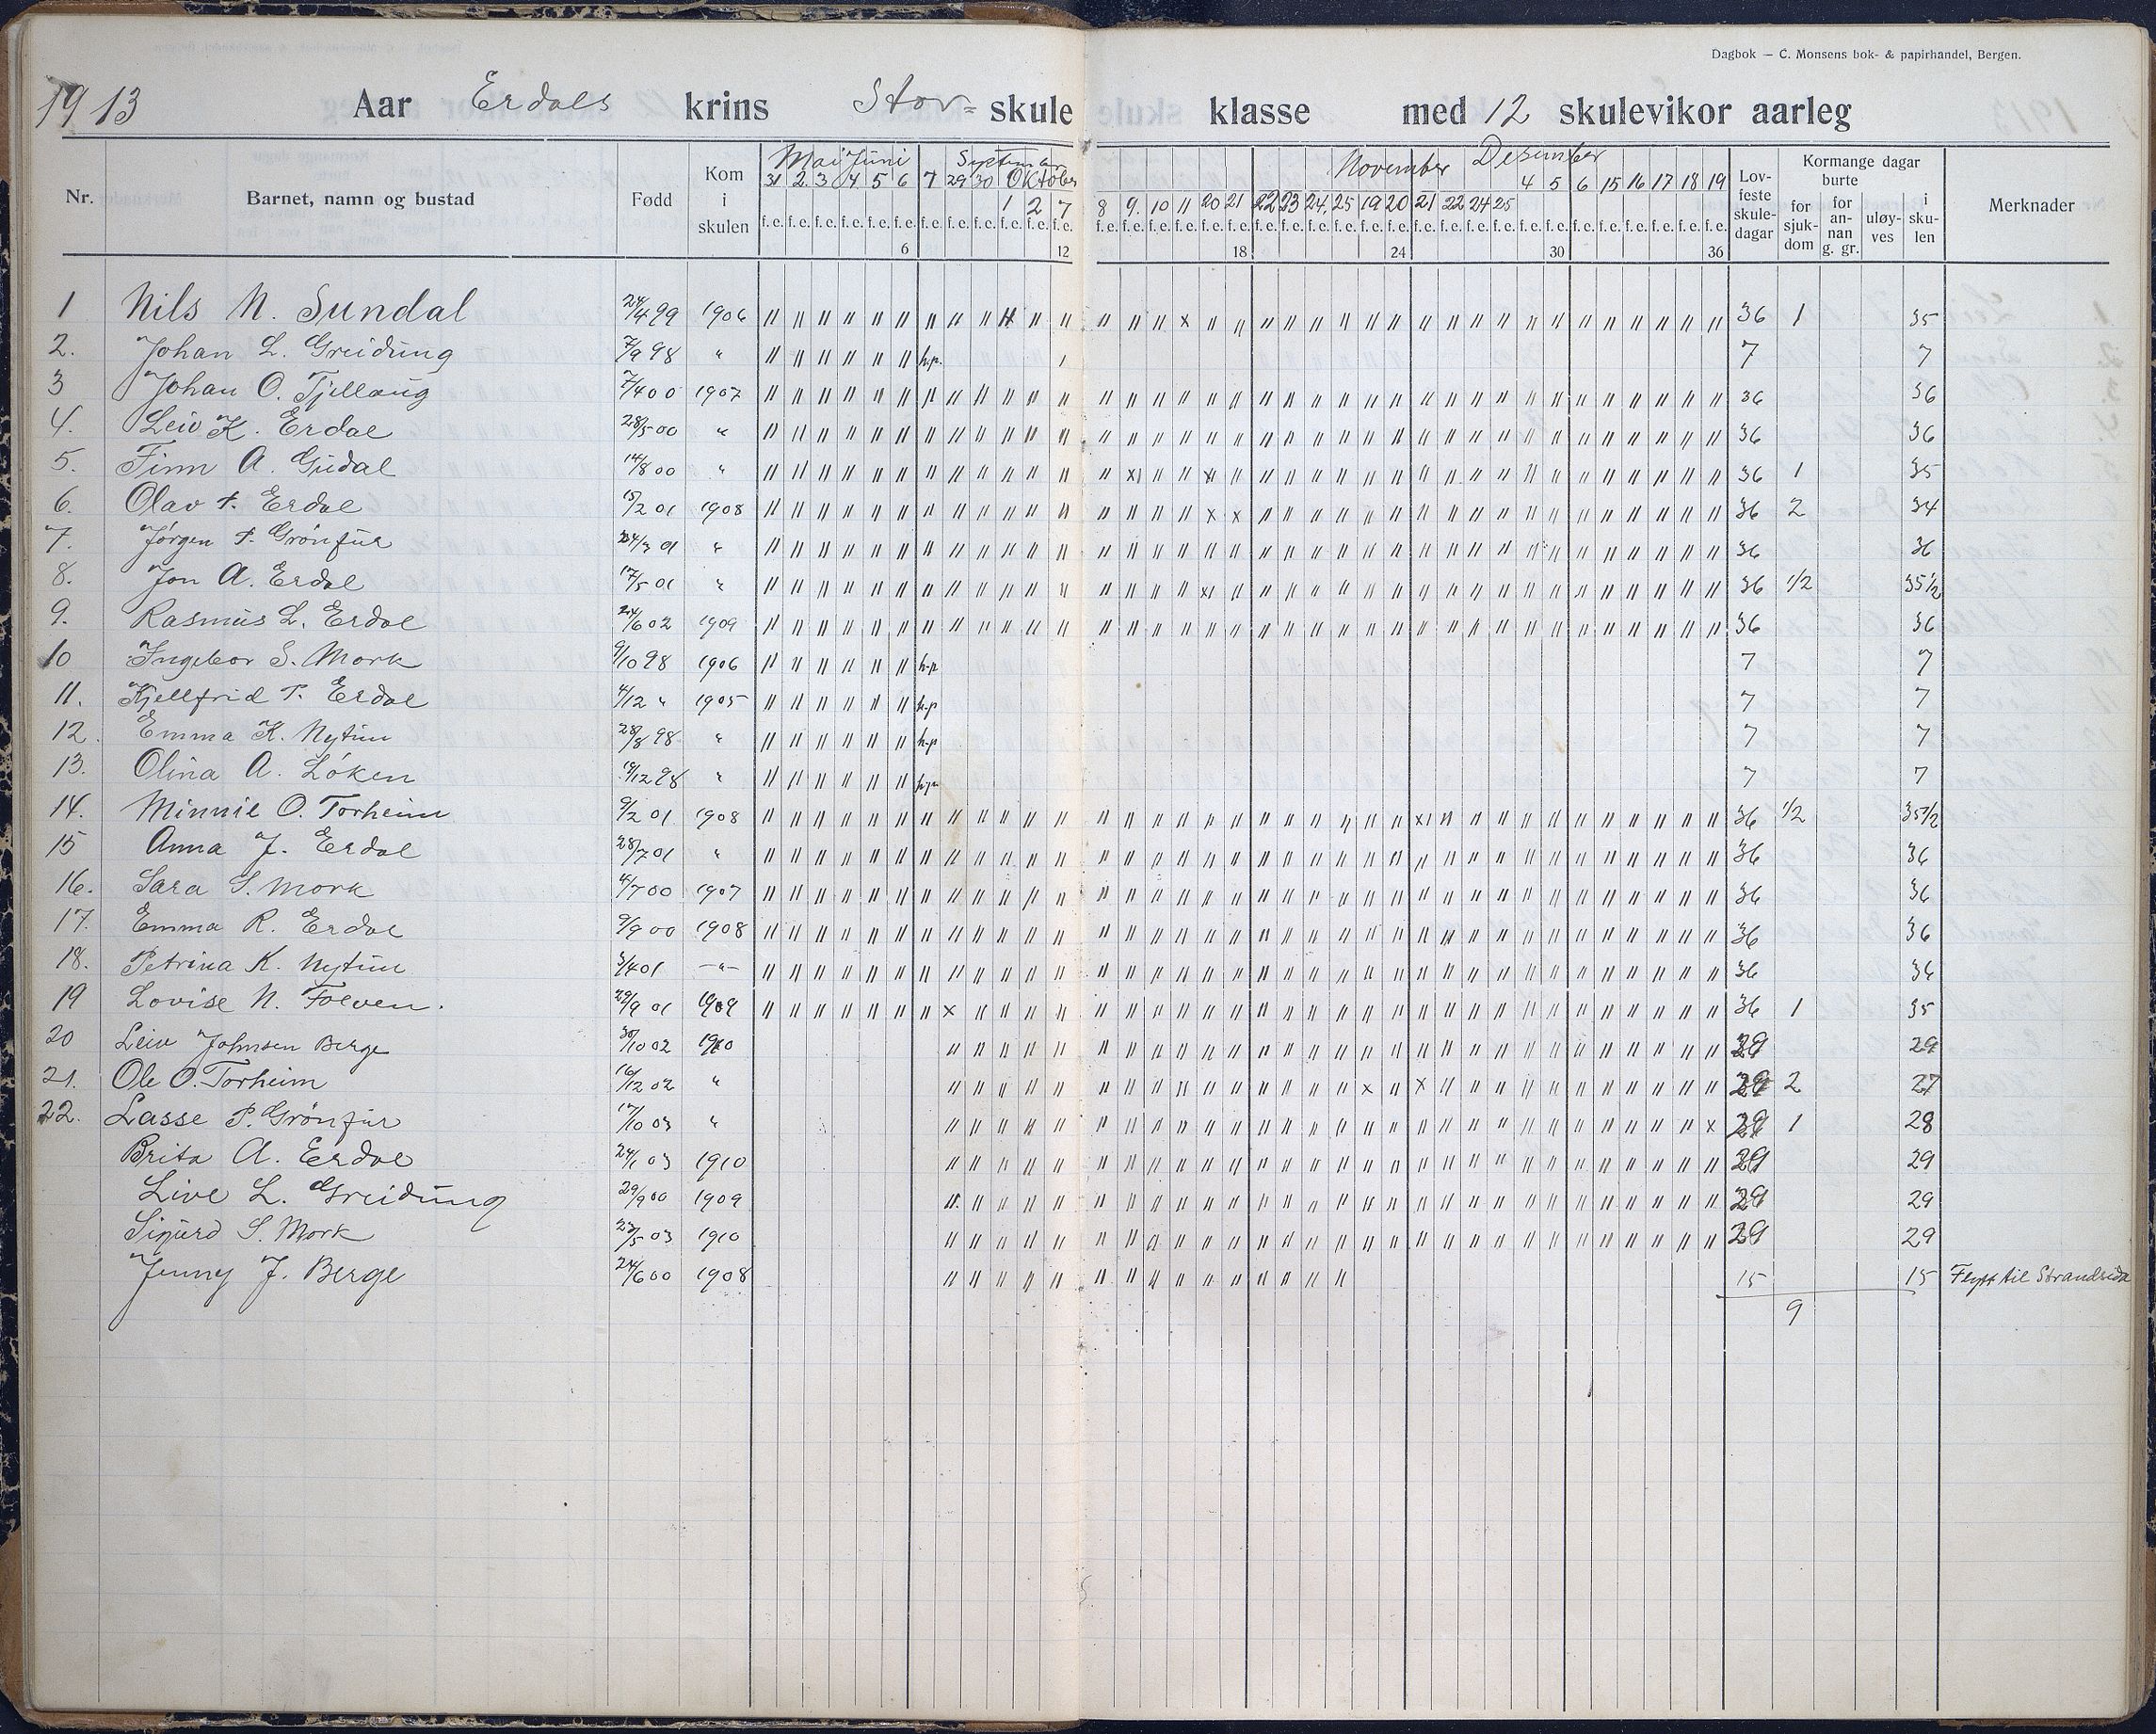 Dagbok — C. Monsens bok- & papirhandel, Bergen.
1913 Aar Erdals krins Stor= skule klasse med 12 skulevikor aarleg
Nr. Barnet, namn og bustad Fødd Kom i skulen Mai Juni September Oktober November Desember Lovfeste skuledagar Kormange dagar burte for sjukdom for annan g. gr. uløyves i skulen Merknader
31 2. 3 4 5 6 7 29 30 1 2 7 8 9. 10 11 20 21 22 23 24. 25 19 20 21 22 24 25 4 5 6 15 16 17 18 19
f. e. f. e. f. e. f. e. f. e. f. e. f. e. f. e. f. e. f. e. f. e. f. e. f. e. f. e. f. e. f. e. f. e. f. e. f. e. f. e. f. e. f. e. f. e. f. e. f. e. f. e. f. e. f. e. f. e. f. e. f. e. f. e. f. e. f. e. f. e. f. e.
6 12 18 24 30 36
1 Nils N. Sundal 24/4 99 1906 36 1 35
2. Johan L. Greidung 7/9 98 " h.p. 7 7
3 Johan O. Tjellaug 7/4 00 1907 36 36
4. Leiv K. Erdal 28/5 00 " 36 36
5. Finn A. Gudal 14/8 00 " 36 1 35
6. Olav P. Erdal 15/2 01 1908 36 2 34
7. Jørgen P. Grönfur 24/3 01 " 36 36
8. Jon A. Erdal 17/5 01 " 36 1/2 35 1/2
9. Rasmus L. Erdal 24/6 02 1909 36 36
10 Ingebor S. Mork 9/10 98 1906 h-p 7 7
11. Kjellfrid P. Erdal 4/12 " 1905 h-p 7 7
12. Emma K. Nytun 28/8 98 " h-p 7 7
13. Olina A. Löken /12 98 " h-p 7 7
14. Minnie O. Torheim 9/2 01 1908 36 1/2 35 1/2
15 Anna J. Erdal 28/7 01 " 36 36
16. Sara S. Mork 4/7 00 1907 36 36
17. Emma R. Erdal 9/9 00 1908 36 36
18. Petrina K. Nytun 3/4 01 —"— 36 36
19 Lovise N. Folven. 29/9 01 1909 36 1 35
20 Leiv Johnsen Berge 30/10 02 1910 29 29
21. Ole O. Torheim 16/12 02 " 29 2 27
22. Lasse P. Grönfur 17/10 03 " 29 1 28
Brita A. Erdal 24/1 03 1910 29 29
Live L. Greidung 29/9 00 1909 29 29
Sigurd S. Mork 23/5 03 1910 29 29
Jenny J. Berge 24/6 00 1908 15 15 Flytt til Strandsida
9